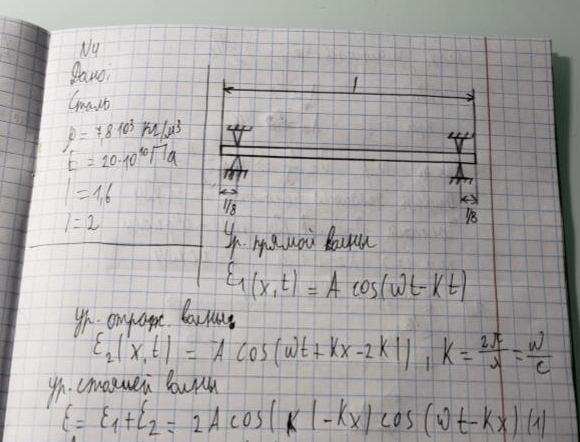 N4
Дано:
Сталь
ρ = 7,8·10³ кг/м³
E = 20·10¹⁰ Па
l = 1,6
l = 2
l
l/8
l/8
Ур. прямой волны
ℰ₁(x,t) = A cos(ωt - Kt)
ур. отраж. волны:
ℰ₂(x,t) = A cos(ωt + Kx - 2Kl), K = 2π/λ = ω/c
ур. стоячей волны
ℰ = ℰ₁ + ℰ₂ = 2A cos(Kl - Kx) cos(ωt - Kx) (1)